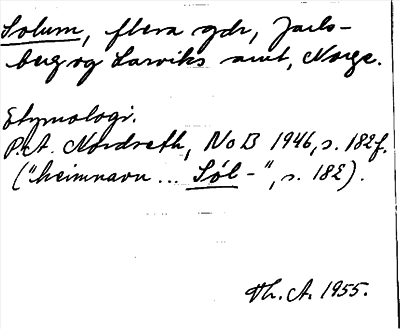 Solum, flera gdr, Jarls-
berg og Larviks amt, Norge.
Etymologi.
P.A. Nordseth, NoB 1946, s. 182f.
("heimnavn ... Sól-", s. 182).
Th. A. 1955.